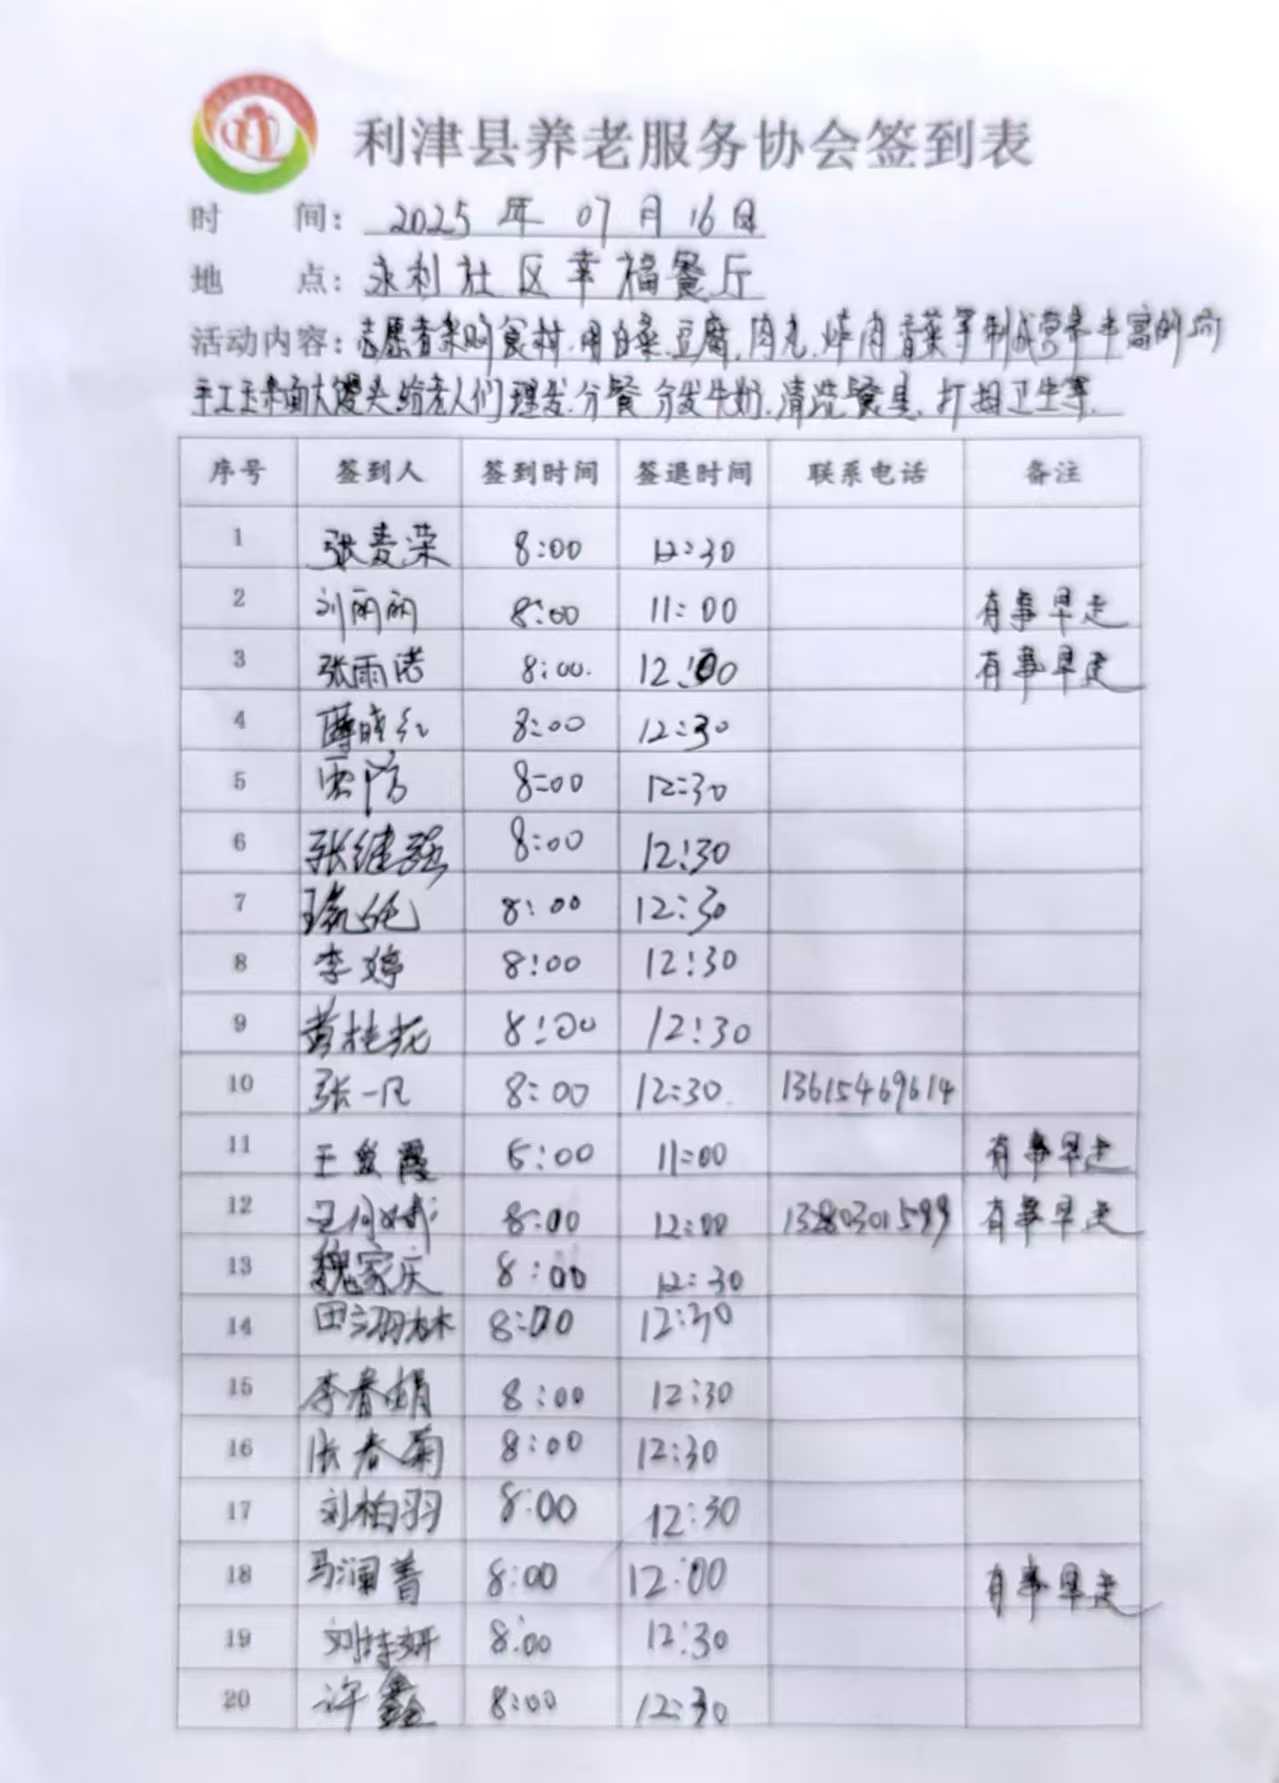 利津县养老服务协会签到表
时 间: 2025 年 07 月 16 日
地 点: 永利社区幸福餐厅
活动内容: 志愿者采购食材.用白菜.豆腐.肉丸.炸肉香菜等制成营养丰富的
手工玉米面大馒头给老人们理发.分餐 分发牛奶.清洗餐具.打扫卫生等.
序号 签到人 签到时间 签退时间 联系电话 备注
1 张麦荣 8:00 12:30
2 刘丽丽 8:00 11:00 有事早走
3 张雨诺 8:00. 12:00 有事早走
4 薄晓红 8:00 12:30
5 8:00 12:30
6 张继强 8:00 12:30
7 8:00 12:30
8 李婷 8:00 12:30
9 黄桂花 8:00 12:30
10 张一凡 8:00 12:30. 13615469614
11 王 霞 8:00 11:00 有事早走
12 8:00 12:00 13280301599 有事早走
13 魏家庆 8:00 12:30
14 田翊林 8:00 12:30
15 李春娟 8:00 12:30
16 张春菊 8:00 12:30
17 刘柏羽 8:00 12:30
18 马澜菁 8:00 12:00 有事早走
19 刘诗妍 8:00 12:30
20 许鑫 8:00 12:30